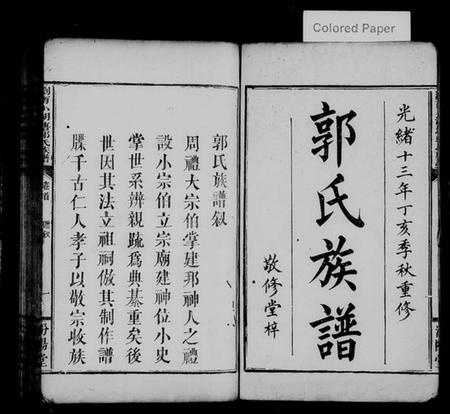 Colored Paper
光緒十三年丁亥季秋重修
郭氏族譜
敬修堂梓
郭氏族譜叙
周禮大宗伯掌建邦神人之禮
設小宗伯立宗廟建神位小史
掌世系辨親疏為典綦重矣後
世因其法立祖祠倣其制作譜
牒千古仁人孝子以敬宗收族
卷首
一